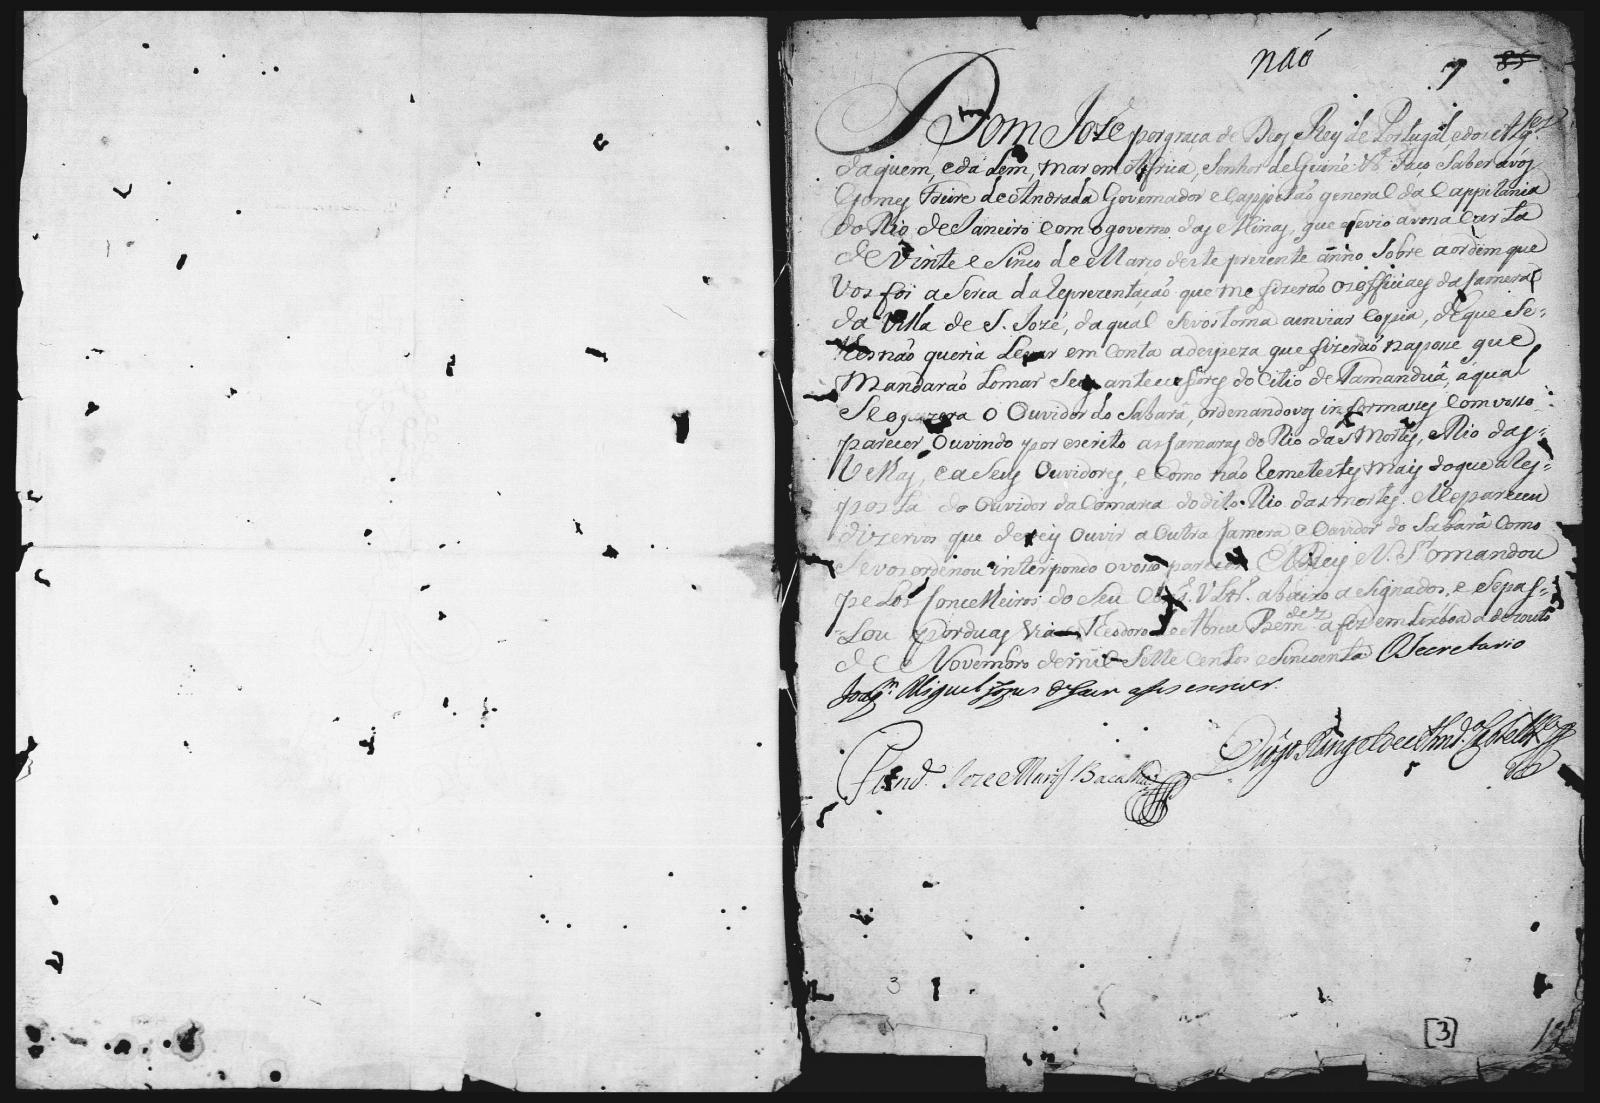 não
7 85
Dom Jozé por graça de Deos Rey de Portugal, e dos Alg.es
daquem, e da lem, mar em Africa, Senhor de Guiné &.ª Faço Saber avós
Gomes Freire de Andrada Governador e Cappitão general da Cappitania
do Rio de Janeiro com o governo das Minas, que se vio a vossa Carta
de Vinte e Sinco de Março deste prezente anno Sobre a ordem que
Vos foi aserca da Reprezentação que me fizerão os officiaes da Camera
da Villa de S. Jozé, da qual Sevos torna a enviar Copia, de que Se-
lhes não queria Levar em Conta a despeza que fizerão na posse que
Mandarão tomar Seus antecessores do Citio de Tamanduâ, a qual
Se opuzera o Ouvidor do Sabarâ, ordenandovos informasseis Com vosso
parecer, Ouvindo por escrito as Camaras do Rio das Mortes, e Rio das-
Velhas, e a Seus Ouvidores, e Como não Remetestes mais do que a Res-
posta do Ouvidor da Comarca do dito Rio das mortes. Me pareceu
dizervos que deveis Ouvir a Outra Camera e Ouvidor do Sabarâ Como
Sevos ordenou interpondo o vosso parecer ElRey N. Sr. o mandou
pelos Conselheiros do Seu Cons.º Ultr.º abaixo asignados, e Sepas-
Sou por duas Vias Theodoro de Abreu Bern.des a fez em Lixboa a dezouto
de Novembro de mil Sette Centos e Sincoenta O Secretario
Joaq.m Miguel Lopes de Laure a fez escrever.
Fern.do Joze Marq.s Bacalhao
Diogo Rangel de Alm.da Castelbr.co
3
[3]